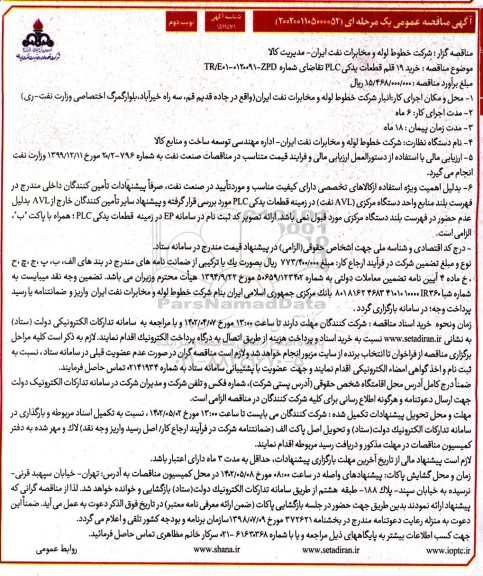 آگهی مناقصه عمومی یک مرحله ای (۲۰۰۲۰۰۱۱۰۵۰۰۰۰۵۲)
شناسه آگهی
۱۵۱۱۵۷۱
نوبت دوم
مناقصه گزار : شرکت خطوط لوله و مخابرات نفت ایران- مدیریت کالا
موضوع مناقصه : خرید ۱۹ قلم قطعات یدکی PLC تقاضای شماره TR/E۰۱-۰۱۲۰۰۹۱-ZPD
مبلغ برآورد مناقصه : ۱۵/۴۶۸/۰۰۰/۰۰۰ ریال
۱- محل و مکان اجرای کار:انبار شرکت خطوط لوله و مخابرات نفت ایران(واقع در جاده قدیم قم، سه راه خیرآباد،بلوارگمرگ اختصاصی وزارت نفت-ری)
۲- مدت اجرای کار: ۶ ماه
۳- مدت زمان پیمان : ۱۸ ماه
۴- نام دستگاه نظارت: شرکت خطوط لوله و مخابرات نفت ایران- اداره مهندسی توسعه ساخت و منابع کالا
۵- ارزیابی مالی با استفاده از دستورالعمل ارزیابی مالی و فرایند قیمت متناسب در مناقصات صنعت نفت به شماره ۷۹۶-۲۰/۲ مورخ ۱۳۹۹/۱۲/۱۱ وزارت نفت
انجام می گیرد.
۶- بدلیل اهمیت ویژه استفاده ازکالاهای تخصصی دارای کیفیت مناسب و موردتأیید در صنعت نفت، صرفاً پیشنهادات تأمین کنندگان داخلی مندرج در
فهرست بلند منابع واحد دستگاه مرکزی (AVL نفت) در زمینه قطعات یدکی PLC مورد بررسی قرار گرفته و پیشنهاد سایر تأمین کنندگان خارج از AVL بدلیل
عدم حضور در فهرست بلند دستگاه مرکزی مورد قبول نمی باشد. ارائه تصویر کد ثبت نام در سامانه EP در زمینه قطعات یدکی PLC ؛ همراه با پاکت "ب"،
الزامی است.
- درج کد اقتصادی و شناسه ملی جهت اشخاص حقوقی(الزامی) در پیشنهاد قیمت مندرج در سامانه ستاد.
نوع و مبلغ تضمین شرکت در فرآیند ارجاع کار: مبلغ ۷۷۳/۴۰۰/۰۰۰ ریال بصورت یک یا ترکیبی از ضمانت نامه های مندرج در بند های الف، ب، پ، ج، چ، ح
، خ ماده ۴ آیین نامه تضمین معاملات دولتی به شماره ۱۲۳۴۰۲/ت۵۰۶۵۹ مورخ ۱۳۹۴/۹/۲۲ هیأت محترم وزیران می باشد. تضمین وجه نقد میبایست به
شماره شبا IR۲۶۰۱۰۰۰۰۴۱۰۱۰۴۶۸۳ ۸۰۱۸۱۶۲ بانک مرکزی جمهوری اسلامی ایران بنام شرکت خطوط لوله و مخابرات نفت ایران واریز و ضمانتنامه یا رسید
پرداخت وجه؛ در سامانه بارگزاری گردد .
زمان ونحوه خرید اسناد مناقصه : شرکت کنندگان مهلت دارند تا ساعت ۱۳:۰۰ مورخ ۱۴۰۲/۰۴/۰۷ و با مراجعه به سامانه تدارکات الکترونیکی دولت (ستاد)
به نشانی www.setadiran.ir نسبت به خرید اسناد و پرداخت هزینه از طریق اتصال به درگاه پرداخت الکترونیک اقدام نمایند. لازم به ذکر است کلیه مراحل
برگزاری مناقصه از فراخوان تا انتخاب برنده از سایت مزبور انجام خواهد شد ولازم است مناقصه گران در صورت عدم عضویت قبلی در سامانه ستاد، نسبت به
ثبت نام و اخذ گواهی امضاء الکترونیکی اقدام نمایند و جهت عضویت با پشتیبانی سامانه ستاد به شماره ۰۲۱۴۱۹۳۴ تماس حاصل فرمایند.
ضمناً درج کامل آدرس محل اقامتگاه شخص حقوقی (آدرس پستی شرکت)، شماره فکس و تلفن شرکت و مدیران شرکت در سامانه تدارکات الکترونیک دولت
جهت ارسال دعوتنامه و هرگونه اطلاع رسانی برای کلیه شرکت کنندگان در مناقصه الزامی است.
مهلت و محل تحویل پیشنهادات تکمیل شده : شرکت کنندگان می بایست تا ساعت ۱۳:۰۰ مورخ ۱۴۰۲/۰۵/۰۲ ، نسبت به تکمیل اسناد مربوطه و بارگذاری در
سامانه تدارکات الکترونیک دولت(ستاد) و تحویل اصل پاکت الف (ضمانتنامه شرکت در فرآیند ارجاع کار/ اصل رسید واریز وجه نقد) لاک و مهر شده به دفتر
کمیسیون مناقصات در مهلت مذکور و دریافت رسید مربوطه اقدام نمایند.
لازم است پیشنهاد مالی از تاریخ آخرین مهلت بارگزاری پیشنهادات، حداقل به مدت ۳ ماه دارای اعتبار باشد.
زمان و محل گشایش پاکات: پیشنهادهای واصله در ساعت ۰۸:۰۰ مورخ ۱۴۰۲/۰۵/۰۸ در محل کمیسیون مناقصات به آدرس: تهران- خیابان سپهبد قرنی-
نرسیده به خیابان سپند- پلاک ۱۸۸- طبقه هشتم از طریق سامانه تدارکات الکترونیک دولت(ستاد) بازگشایی و خوانده خواهد شد. لذا از مناقصه گرانی که
پیشنهاد ارائه نمودند بدین طریق جهت حضور در جلسه بازگشایی پاکات (ضمن ارائه معرفی نامه معتبر) در تاریخ فوق الذکر دعوت به عمل می آید. ضمناً این
دعوت به منزله رعایت دعوتنامه مندرج در بخشنامه ۳۷۲۶۲۱ مورخ ۱۳۹۸/۰۷/۰۹ سازمان برنامه و بودجه کشور تلقی و اعلام می گردد.
جهت کسب اطلاعات بیشتر به پایگاههای ذیل مراجعه و یا با شماره ۶۱۶۳۰۳۶۸-۰۲۱ سرکار خانم مظاهری تماس حاصل فرمائید.
www.ioptc.ir www.setadiran.ir www.shana.ir روابط عمومی